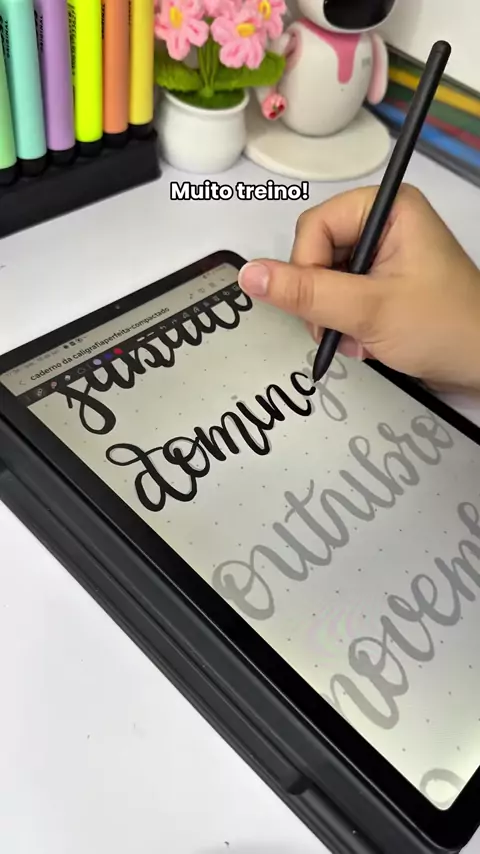 Muito treino!
caderno da caligrafiaperfeita-compactado
sabado
domingo
outubro
novem